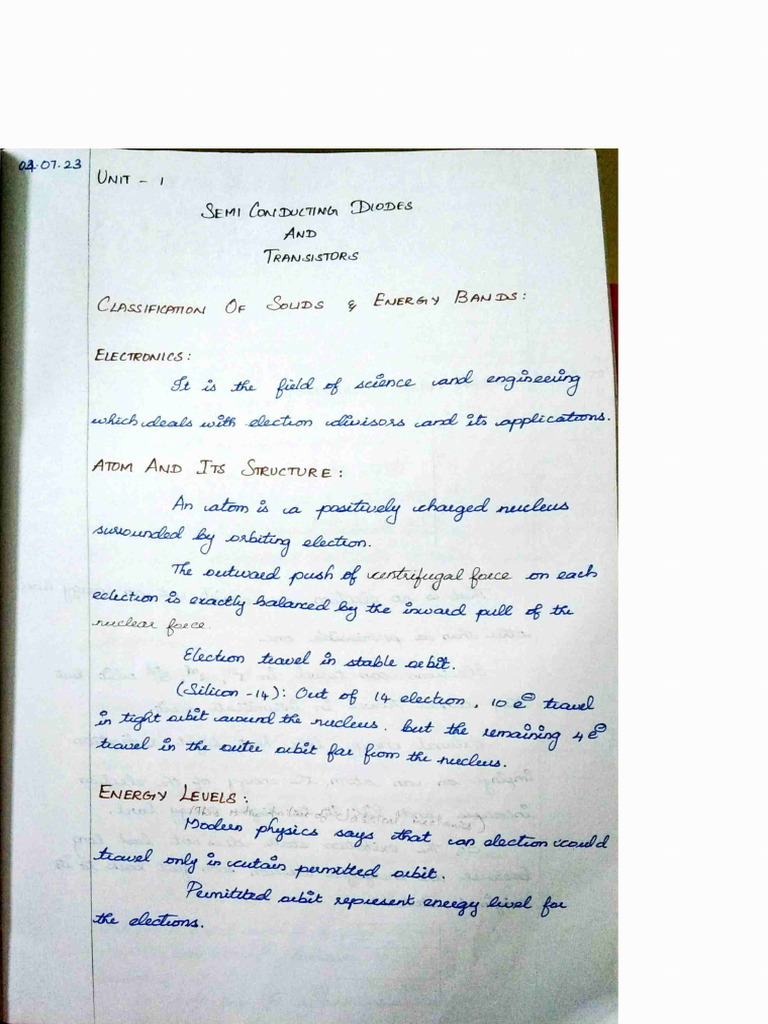 04.07.23
UNIT - 1
SEMI CONDUCTING DIODES
AND
TRANSISTORS
CLASSIFICATION OF SOLIDS & ENERGY BANDS:
ELECTRONICS:
It is the field of science and engineering
which deals with election divisors and its applications.
ATOM AND ITS STRUCTURE:
An atom is a positively charged nucleus
surrounded by orbiting election.
The outward push of centrifugal force on each
eclection is exactly balanced by the inward pull of the
nuclear force.
Election travel in stable orbit.
(Silicon -14): Out of 14 election, 10 e⊖ travel
in tight orbit around the nucleus. but the remaining 4 e⊖
travel in the outer orbit far from the nucleus.
ENERGY LEVELS:
Modern physics says that an election could
travel only in certain permitted orbit.
Permitted orbit represent energy level for
the elections.